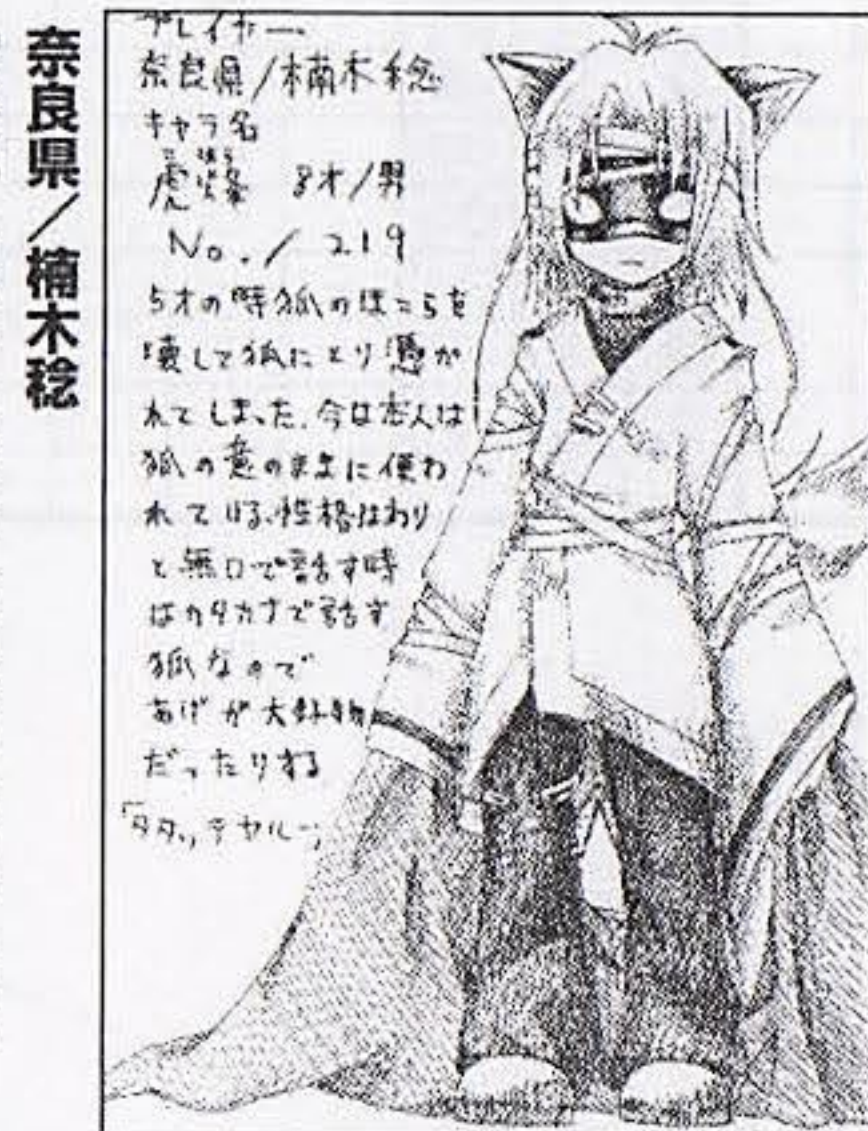 奈良県／楠木稔
プレイヤー
奈良県/楠木稔
キャラ名
8才/男
No./219
5才の時狐のほこらを
壊して狐にとり憑か
れてしまった。今は本人は
狐の意のままに使わ
れている、性格はわり
と無口で話す時
はカタカナで話す
狐なので
あげが大好物
だったりする
「タタッテヤルー」